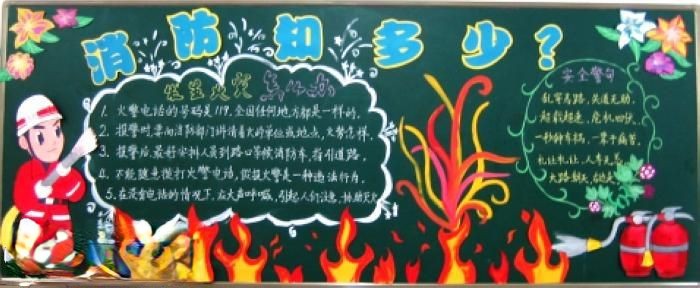 消防知多少？
发生火灾怎么办
1. 火警电话的号码是119，全国任何地方都是一样的。
2. 报警时，要向消防部门讲清着火的单位或地点，火势怎样。
3. 报警后，最好安排人员到路口等候消防车，指引道路。
4. 不能随意拨打火警电话，假报火警是一种违法行为。
5. 在没有电话的情况下，应大声呼喊，引起人们注意，协助灭火
安全警句
乱穿马路，失道无助，
超载超速，危机四伏，
一秒钟车祸，一辈子痛苦，
礼让礼让，人车无恙，
大路朝天，